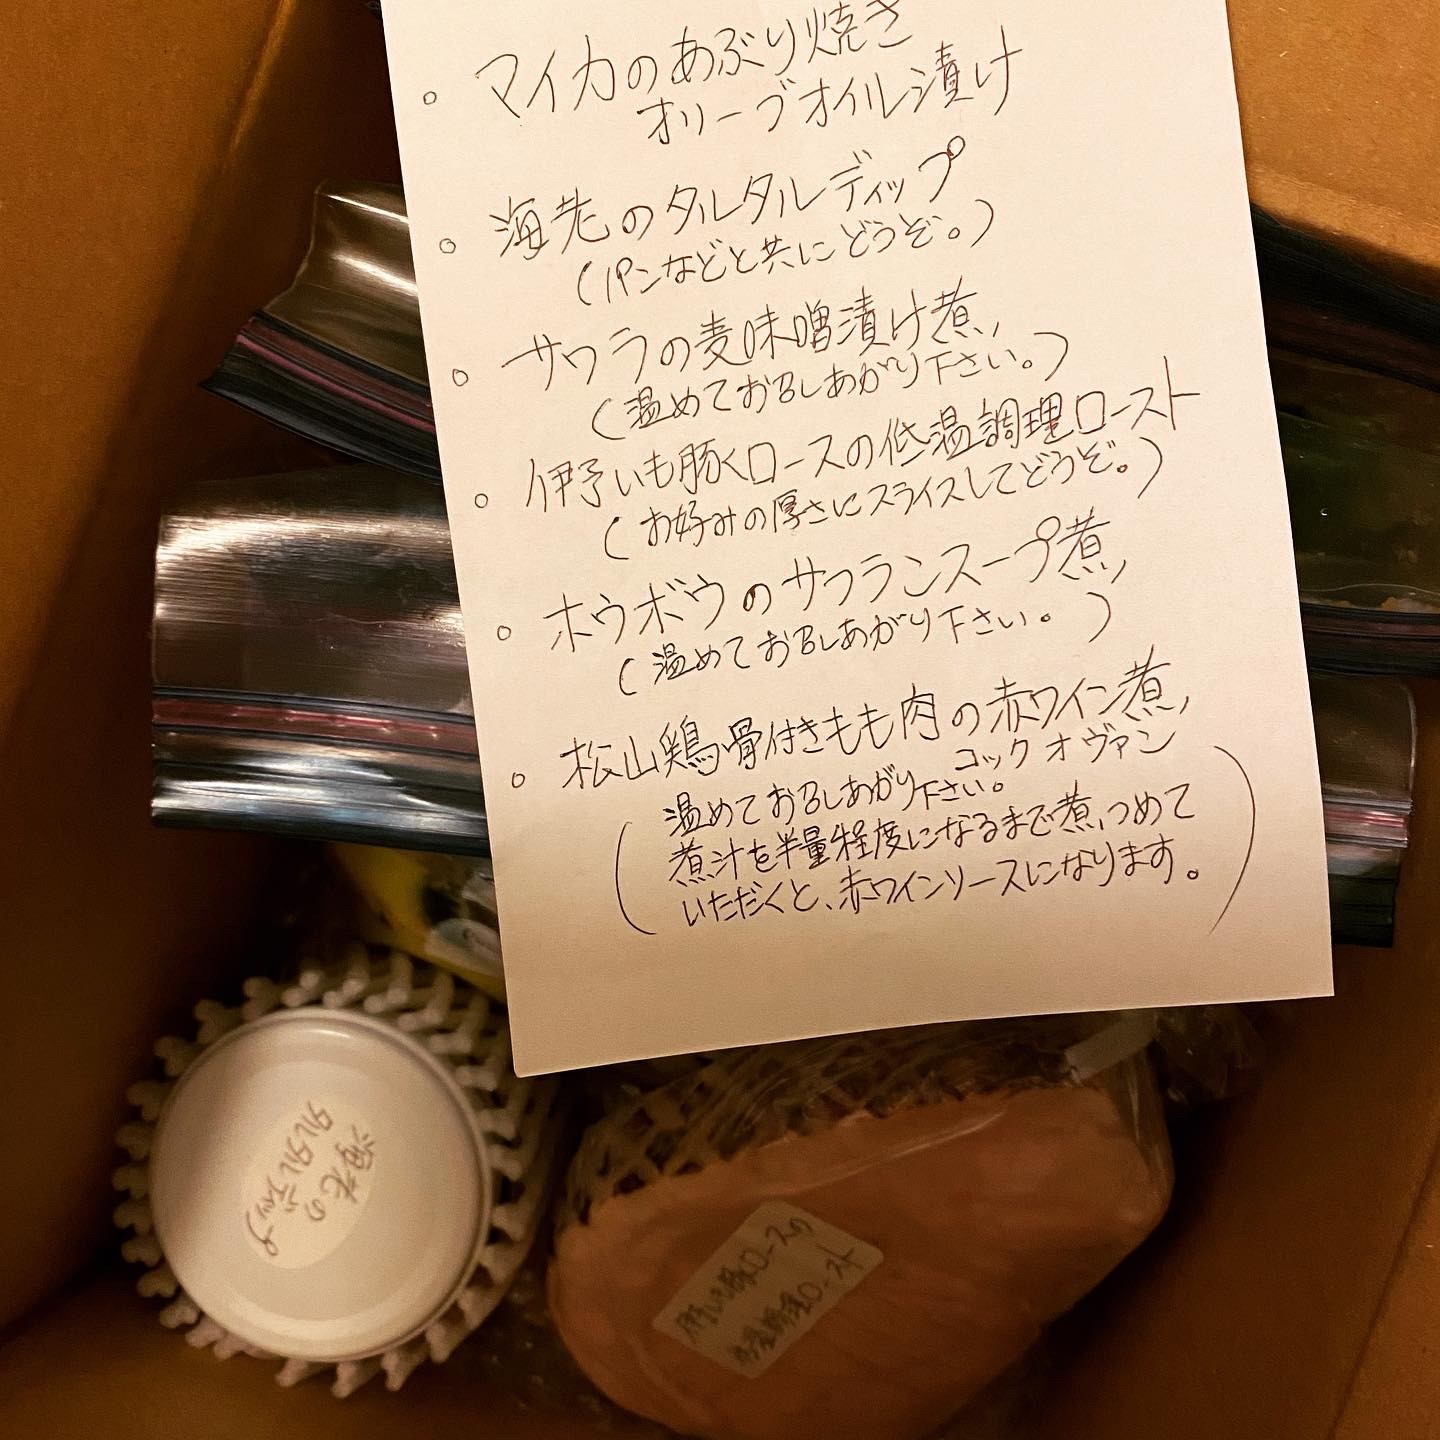 。マイカのあぶり焼き
オリーブオイル漬け
。海老のタルタルディップ
(パンなどと共にどうぞ。)
。サワラの麦味噌漬け煮
(温めてお召しあがり下さい。)
。伊予いも豚ロースの低温調理ロースト
(お好みの厚さにスライスしてどうぞ。)
。ホウボウのサフランスープ煮
(温めてお召しあがり下さい。)
。松山鶏骨付きもも肉の赤ワイン煮
コックオヴァン
(温めてお召しあがり下さい。
煮汁を半量程度になるまで煮つめて
いただくと、赤ワインソースになります。)
海老の
タルタル
ディップ
伊予いも豚ロースの
低温調理ロースト